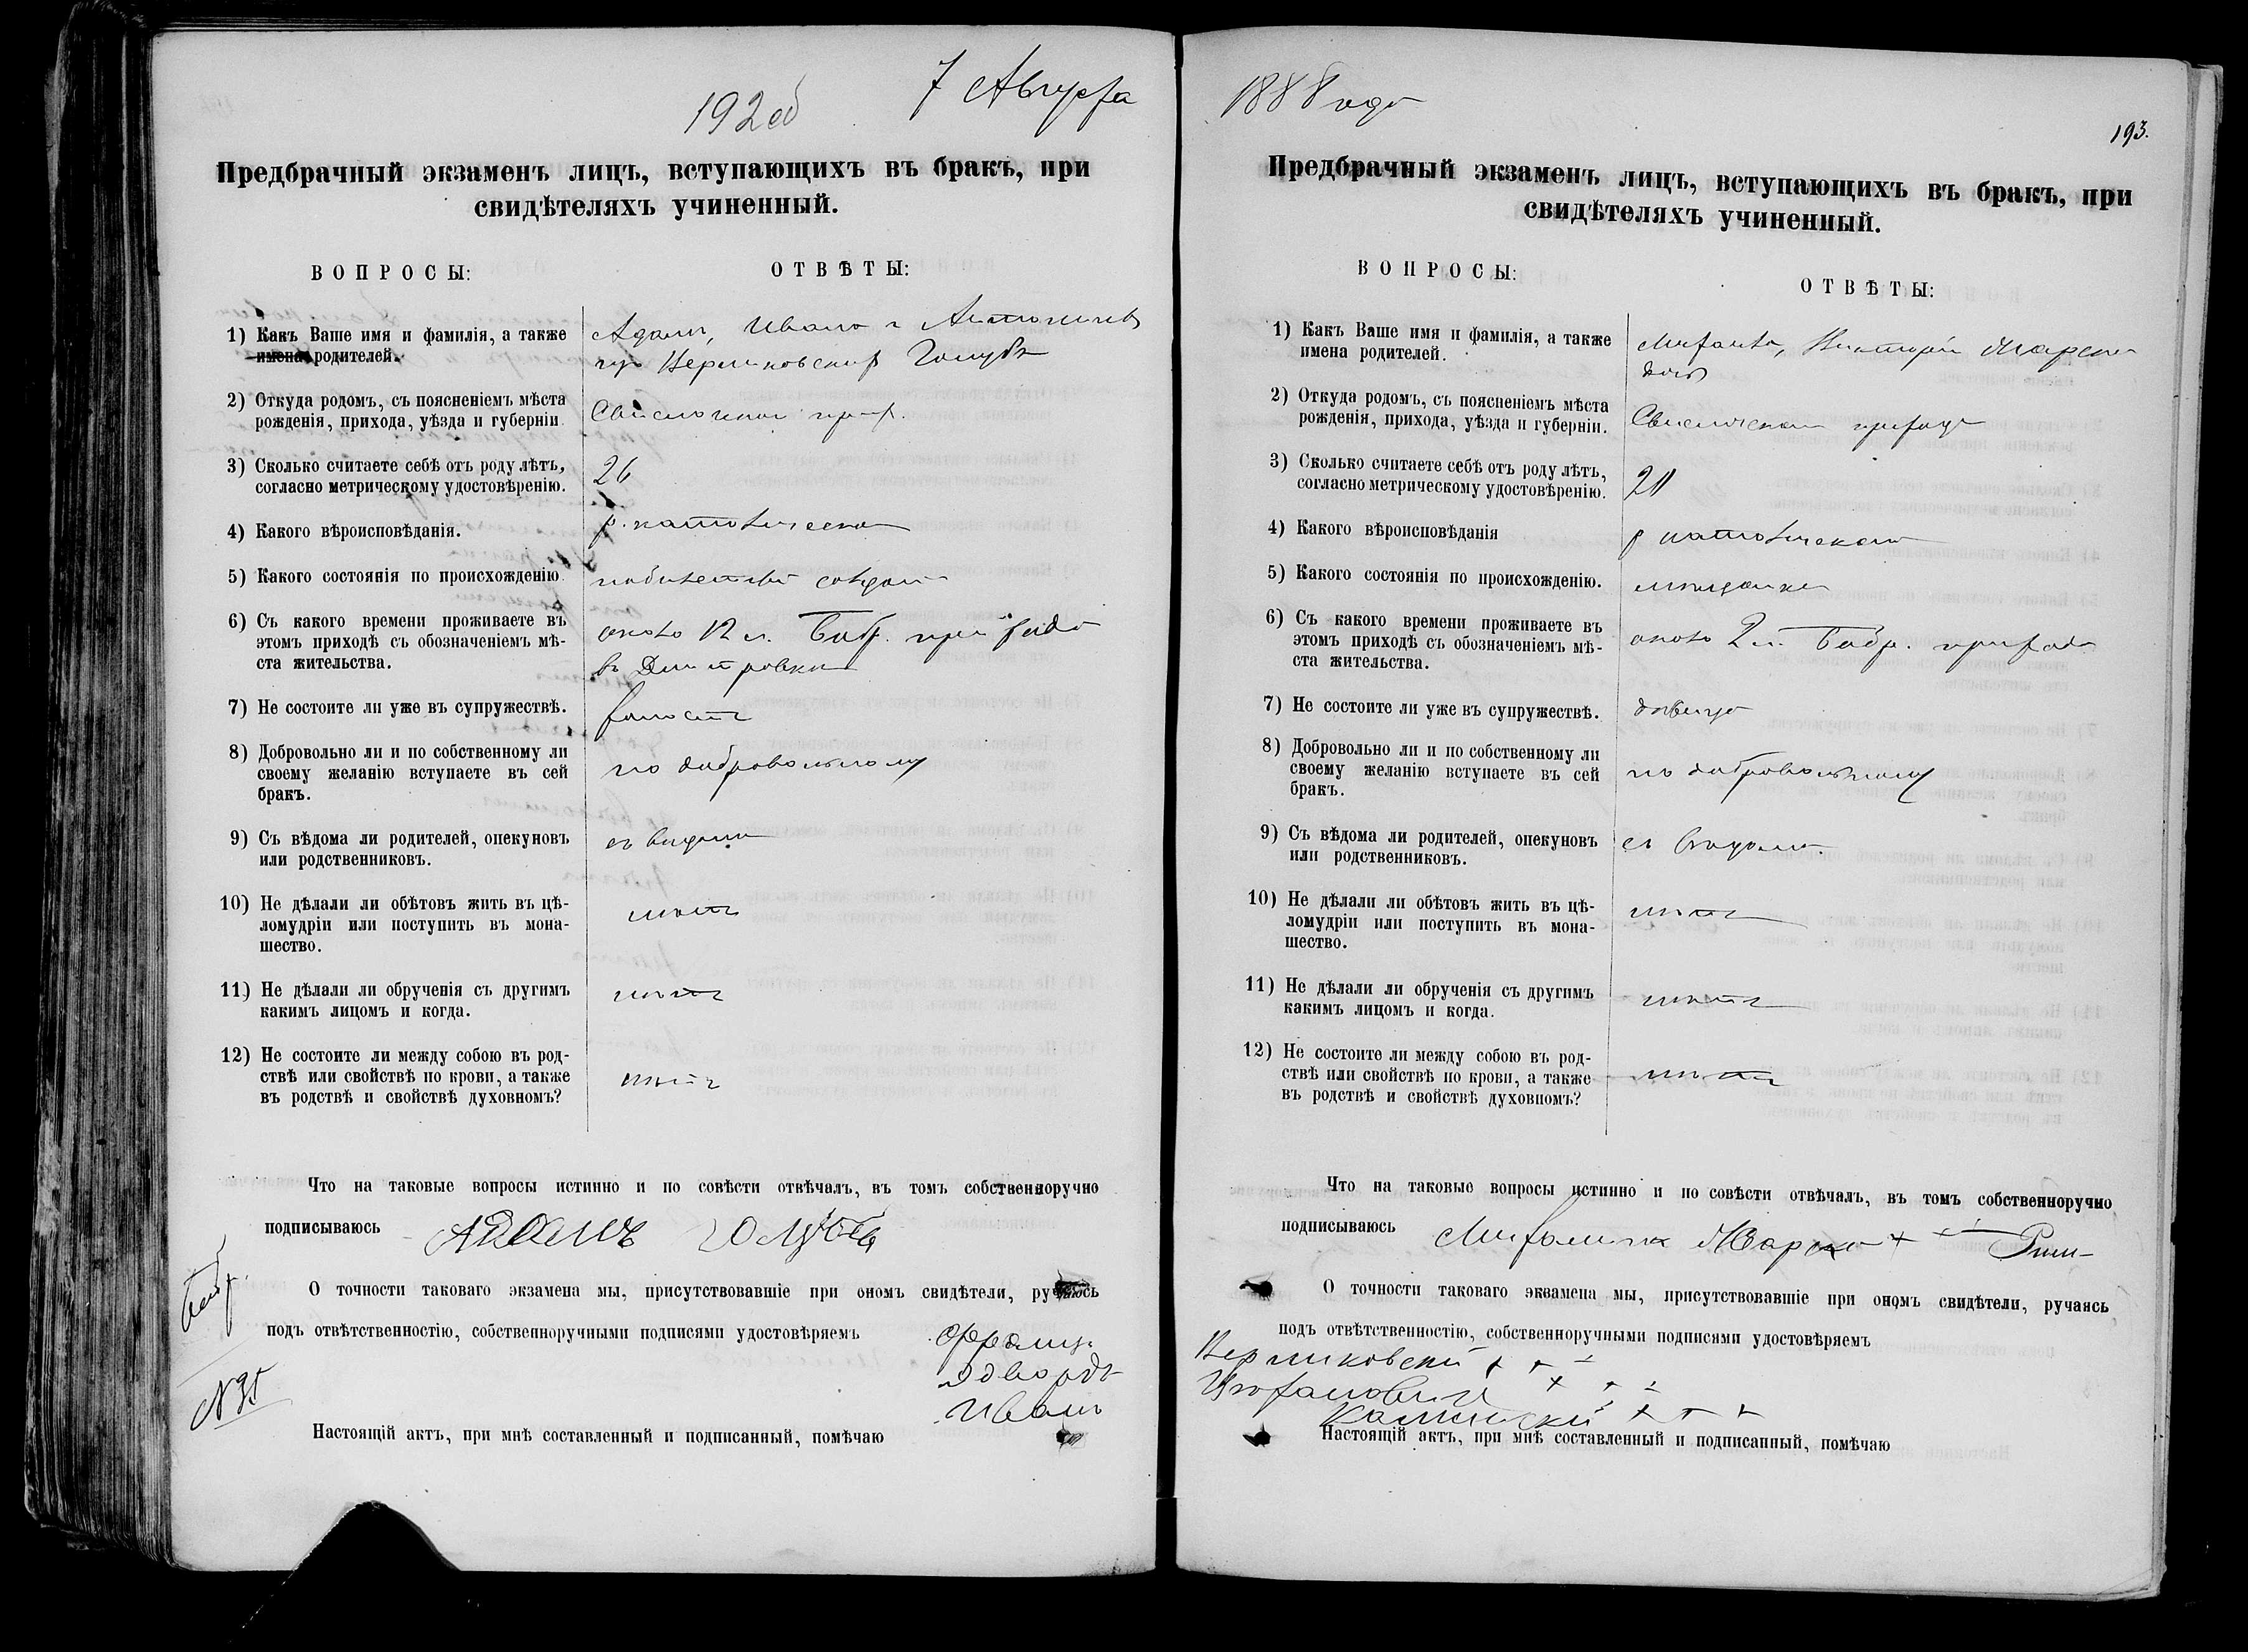 192об
7 Августа
Предбрачный экзаменъ лицъ, вступающихъ въ бракъ, при
свидѣтеляхъ учиненный.
ВОПРОСЫ:
ОТВѢТЫ:
1) Какъ Ваше имя и фамилія, а также
имена родителей.
Адамъ, Ивана и Антонины
Голубъ
2) Откуда родомъ, съ поясненіемъ мѣста
рожденія, прихода, уѣзда и губерніи.
3) Сколько считаете себѣ отъ роду лѣтъ,
согласно метрическому удостовѣренію.
26
4) Какого вѣроисповѣданія.
р. католическаго
5) Какого состоянія по происхожденію.
6) Съ какого времени проживаете въ
этомъ приходѣ съ обозначеніемъ мѣ-
ста жительства.
около 12 л. Бобр. прихода
въ Дмитровки
7) Не состоите ли уже въ супружествѣ.
холостъ
8) Добровольно ли и по собственному ли
своему желанію вступаете въ сей
бракъ.
по добровольному
9) Съ вѣдома ли родителей, опекуновъ
или родственниковъ.
съ вѣдома
10) Не дѣлали ли обѣтовъ жить въ цѣ-
ломудріи или поступить въ мона-
шество.
нѣтъ
11) Не дѣлали ли обрученія съ другимъ
какимъ лицомъ и когда.
нѣтъ
12) Не состоите ли между собою въ род-
ствѣ или свойствѣ по крови, а также
въ родствѣ и свойствѣ духовномъ?
нѣтъ
Что на таковые вопросы истинно и по совѣсти отвѣчалъ, въ томъ собственноручно
подписываюсь Адамъ Голубъ
О точности таковаго экзамена мы, присутствовавшіе при ономъ свидѣтели, ручаясь
подъ отвѣтственностію, собственноручными подписями удостовѣряемъ
Францъ
Эдвордъ
Иванъ
№ 35
Настоящій актъ, при мнѣ составленный и подписанный, помѣчаю
1888 года
193.
Предбрачный экзаменъ лицъ, вступающихъ въ бракъ, при
свидѣтеляхъ учиненный.
ВОПРОСЫ:
ОТВѢТЫ:
1) Какъ Ваше имя и фамилія, а также
имена родителей.
дочь
2) Откуда родомъ, съ поясненіемъ мѣста
рожденія, прихода, уѣзда и губерніи.
прихода
3) Сколько считаете себѣ отъ роду лѣтъ,
согласно метрическому удостовѣренію.
4) Какого вѣроисповѣданія
р католическаго
5) Какого состоянія по происхожденію.
мѣщанка
6) Съ какого времени проживаете въ
этомъ приходѣ съ обозначеніемъ мѣ-
ста жительства.
около 2 л. Бобр. прихода
7) Не состоите ли уже въ супружествѣ.
дѣвица
8) Добровольно ли и по собственному ли
своему желанію вступаете въ сей
бракъ.
по добровольному
9) Съ вѣдома ли родителей, опекуновъ
или родственниковъ.
съ вѣдома
10) Не дѣлали ли обѣтовъ жить въ цѣ-
ломудріи или поступить въ мона-
шество.
нѣтъ
11) Не дѣлали ли обрученія съ другимъ
какимъ лицомъ и когда.
нѣтъ
12) Не состоите ли между собою въ род-
ствѣ или свойствѣ по крови, а также
въ родствѣ и свойствѣ духовномъ?
нѣтъ
Что на таковые вопросы истинно и по совѣсти отвѣчалъ, въ томъ собственноручно
подписываюсь
О точности таковаго экзамена мы, присутствовавшіе при ономъ свидѣтели, ручаясь
подъ отвѣтственностію, собственноручными подписями удостовѣряемъ
+ + +
+ + +
Каминскій + + +
Настоящій актъ, при мнѣ составленный и подписанный, помѣчаю